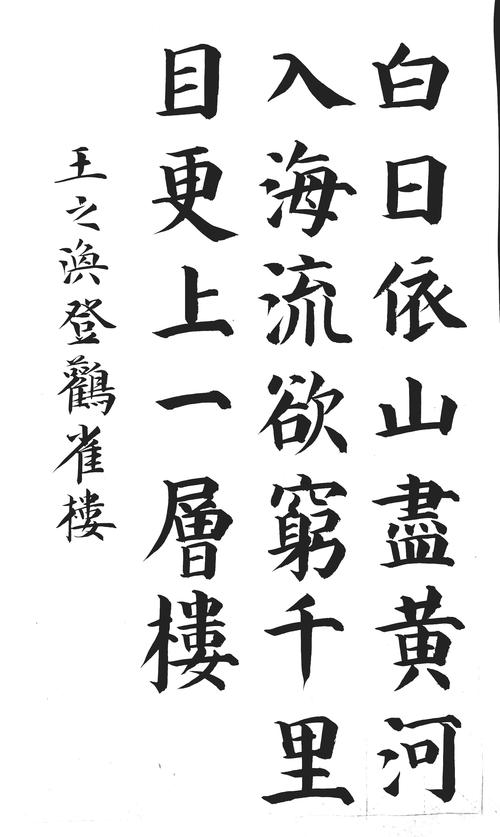 白日依山盡黄河
入海流欲窮千里
目更上一層樓
王之渙登鸛雀樓